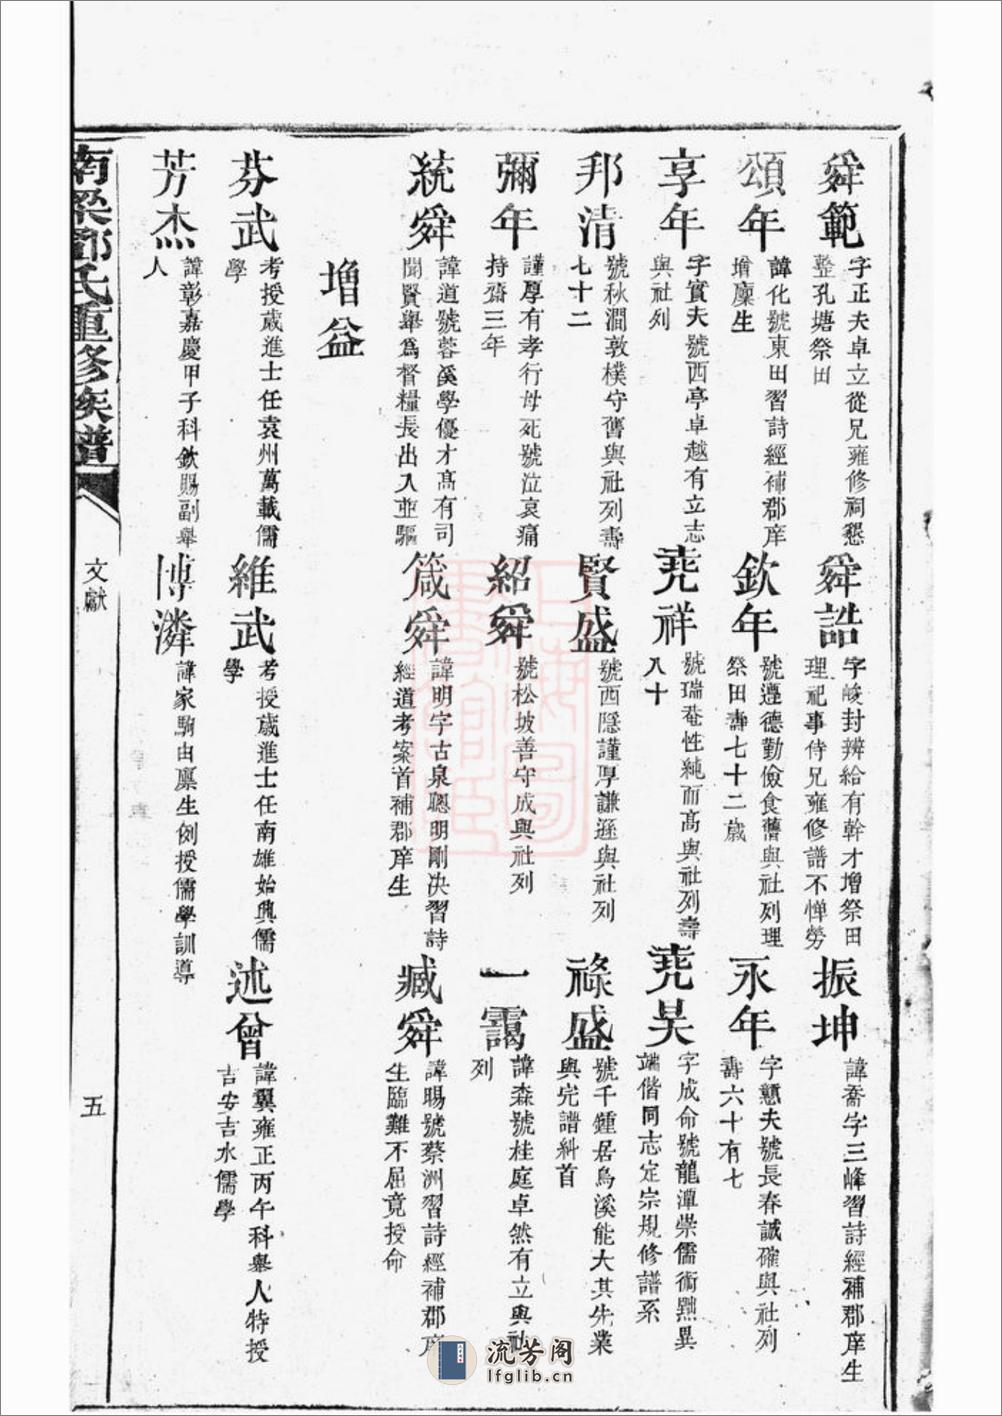 舜範 字正夫卓立從兄雍修祠懇
整孔塘祭田
舜誥 字峻封辨給有幹才增祭田
理祀事侍兄雍修譜不憚勞
振坤 諱喬字三峰習詩經補郡庠生
頌年 諱化號東田習詩經補郡庠
增廩生
欽年 號遵德勤儉食舊與社列理
祭田壽七十二歲
永年 字懸夫號長春誠確與社列
壽六十有七
享年 字實夫號西亭卓越有立志
與社列
堯祥 號瑞菴性純而高與社列壽
八十
堯昊 字成命號龍潭崇儒術黜異
端偕同志定宗規修譜系
邦清 號秋澗敦樸守舊與社列壽
七十二
賢盛 號西隱謹厚謙遜與社列
祿盛 號千鍾居烏溪能大其先業
與完譜糾首
彌年 謹厚有孝行母死號泣哀痛
持齋三年
紹舜 號松坡善守成與社列
一靄 諱森號桂庭卓然有立與社
列
統舜 諱道號蓉溪學優才高有司
聞賢舉爲督糧長出入並驅
箴舜 諱明字古泉聰明剛決習詩
經道考案首補郡庠生
臧舜 諱賜號蔡洲習詩經補郡庠
生臨難不屈竟授命
增益
芬武 考授歲進士任袁州萬載儒
學
維武 考授歲進士任南雄始興儒
學
述曾 諱翼雍正丙午科舉人特授
吉安吉水儒學
芳杰 諱彰嘉慶甲子科欽賜副舉
人
博潾 諱家駒由廩生例授儒學訓導
南梁鄧氏重修族譜
文獻
五
流芳阁
lfglib.cn